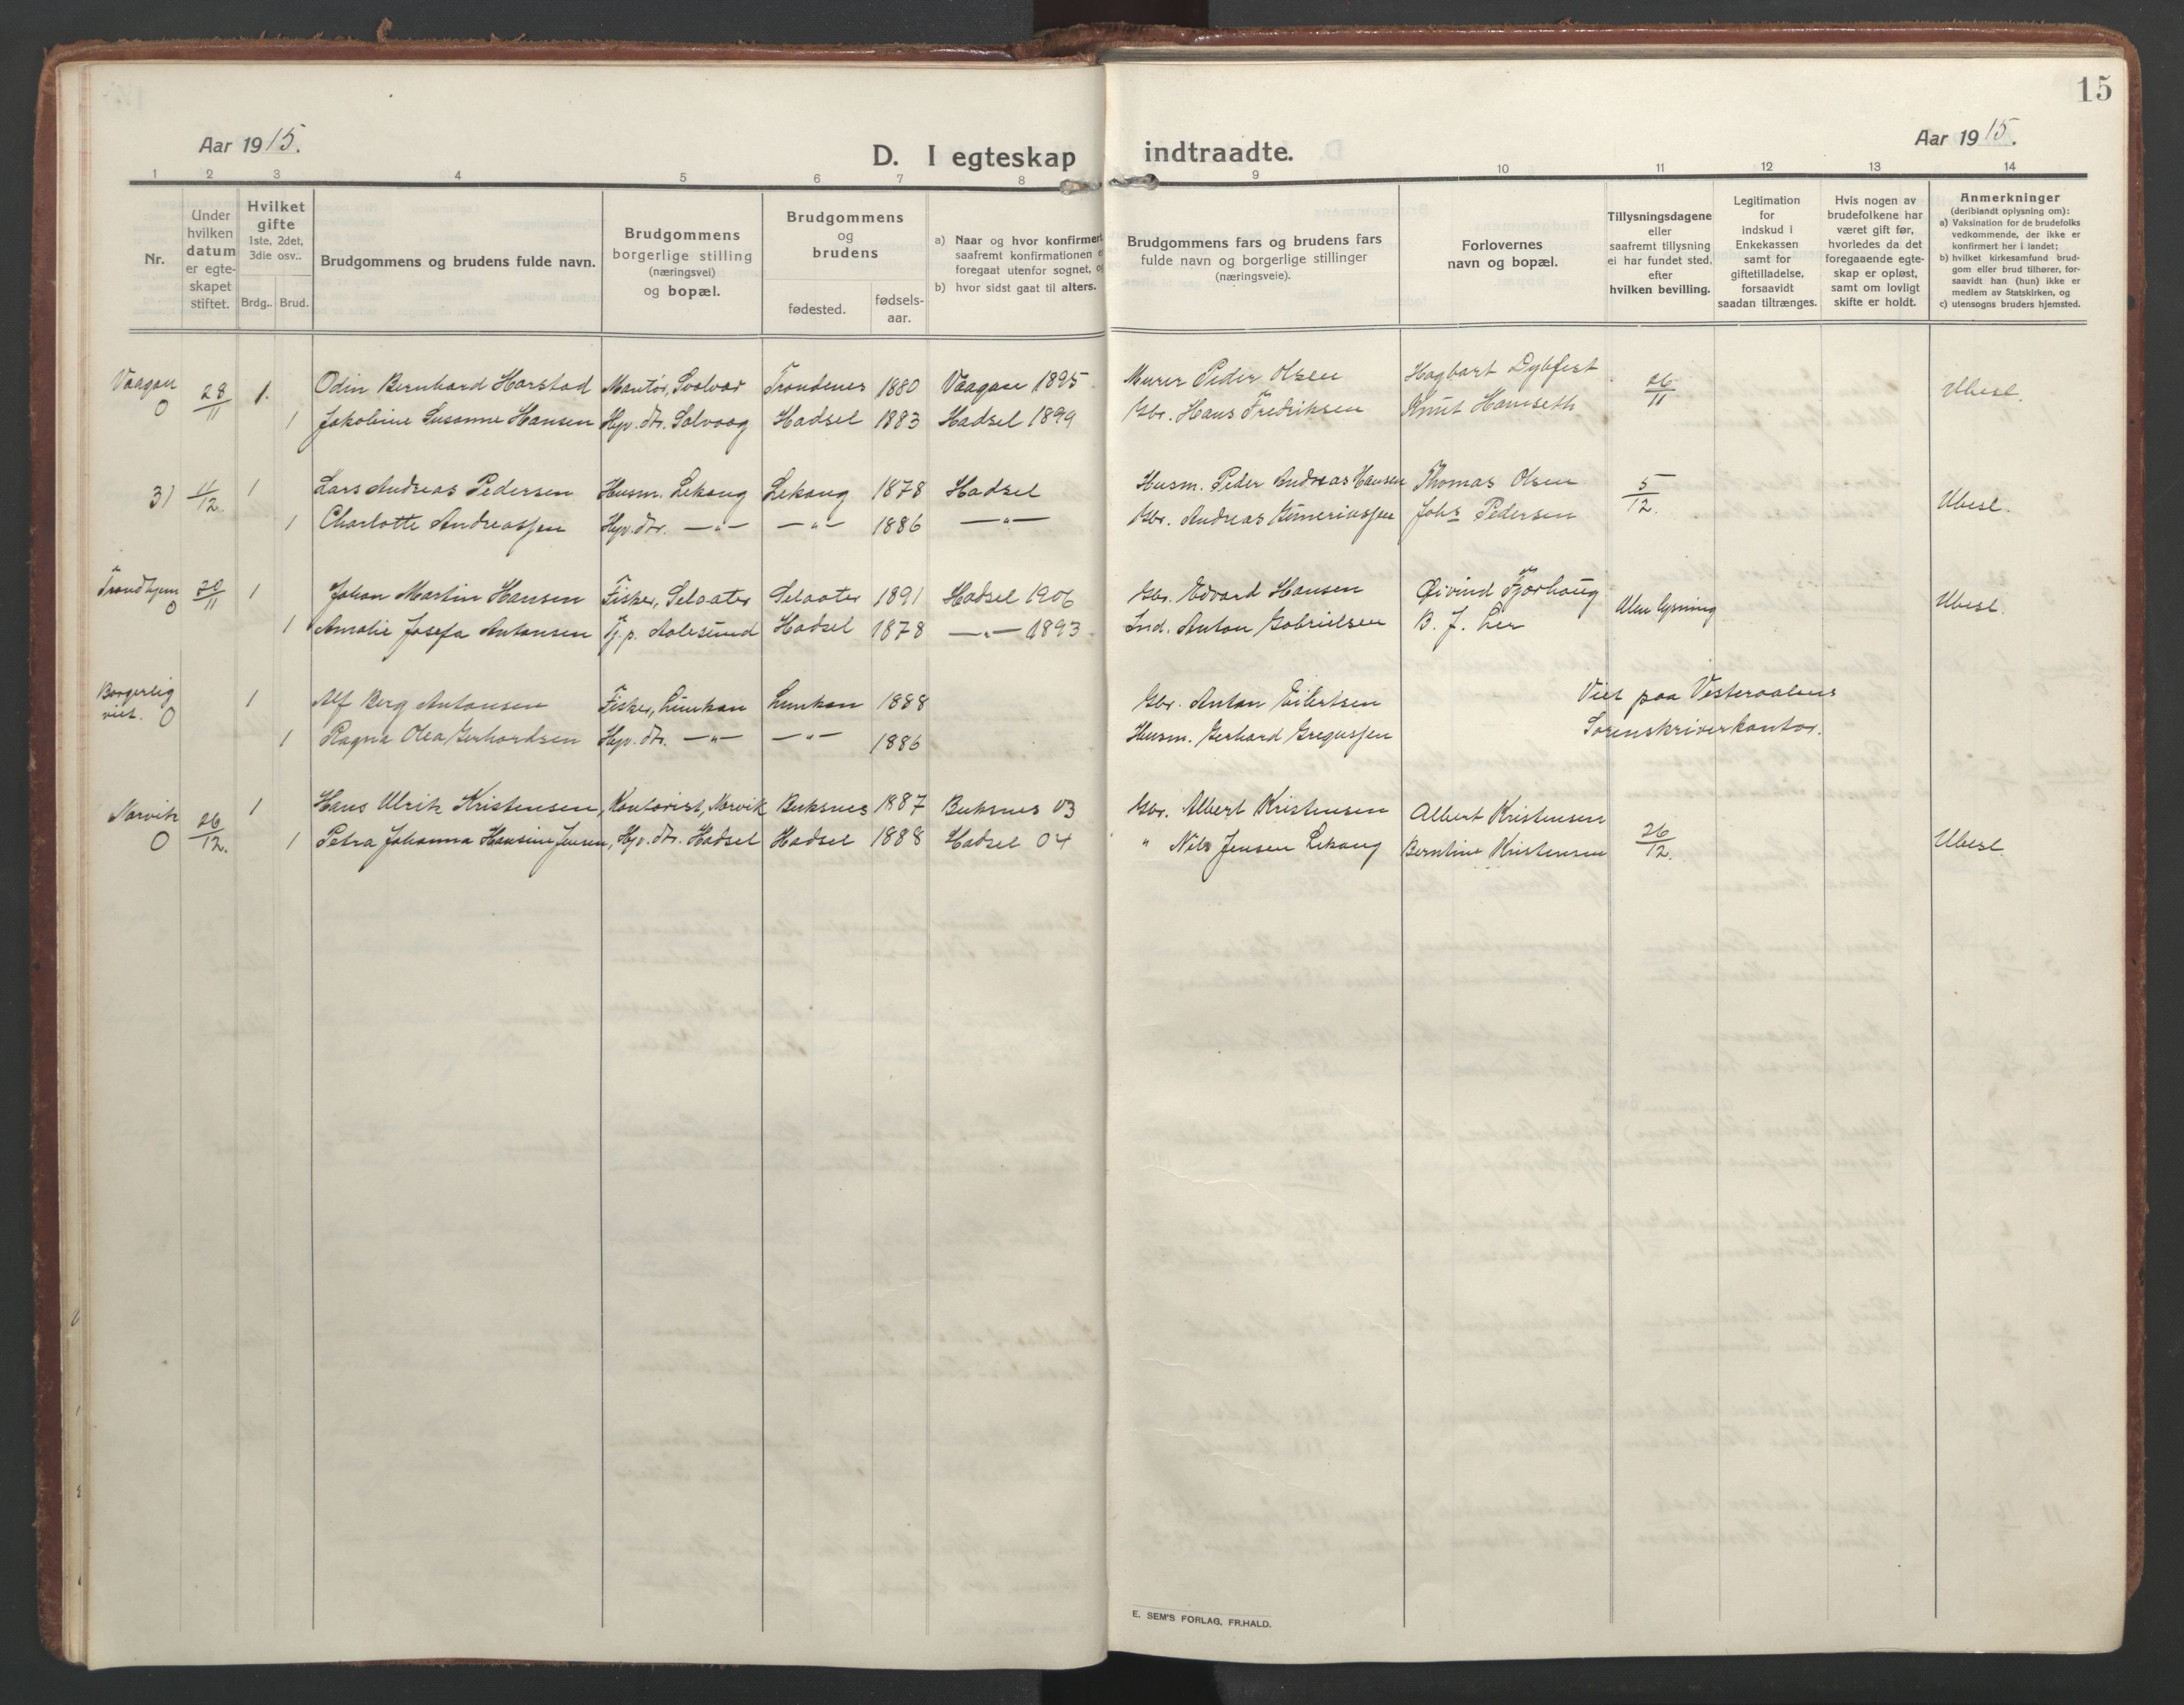 15
Aar 1915.
D. I egteskap indtraadte.
Aar 1915.
1 2 3 4 5 6 7 8 9 10 11 12 13 14
Nr.
Under
hvilken
datum
er egte-
skapet
stiftet.
Hvilket
gifte
1ste, 2det,
3die osv..
Brdg.. Brud.
Brudgommens og brudens fulde navn.
Brudgommens
borgerlige stilling
(næringsvei)
og bopæl.
Brudgommens
og
brudens
fødested.
fødsels-
aar.
a) Naar og hvor konfirmert
saafremt konfirmationen
foregaat utenfor sognet,
b) hvor sidst gaat til alters.
Brudgommens fars og brudens fars
fulde navn og borgerlige stillinger
(næringsveie).
Forlovernes
navn og bopæl.
Tillysningsdagene
eller
saafremt tillysning
ei har fundet sted,
efter
hvilken bevilling.
Legitimation
for
indskud i
Enkekassen
samt for
giftetilladelse,
forsaavidt
saadan tiltrænges.
Hvis nogen av
brudefolkene har
været gift før,
hvorledes da det
foregaaende egte-
skap er opløst,
samt om lovligt
skifte er holdt.
Anmerkninger
(deriblandt oplysning om):
a) Vaksination for de brudefolks
vedkommende, der ikke er
konfirmert her i landet;
b) hvilket kirkesamfund brud-
gom eller brud tilhører, for-
saavidt han (hun) ikke er
medlem av Statskirken, og
c) utensogns bruders hjemsted.
Vaagan 0 28/11 1. Odin Bernhard Harstad Svolvær Trondenes 1880 Vaagan 1895 Murer Peder Olsen Hagbart Dybfest 26/11 Ubesl.
1 Jakobine Susanne Hansen Hjv. dtr. Solvaag Hadsel 1883 Hadsel 1899 Gbr. Hans Fredriksen Knut Hamseth
3) 11/12. 1 Lars Andreas Pedersen Husm. Lekang Lekang 1878 Hadsel Husm. Peder Andreas Hansen Thomas Olsen 5/12. Ubesl.
1 Charlotte Andreassen Hjv. dtr. —"— —"— 1886 —"— Gbr. Andreas Johs Pedersen
Trondhjem 0 20/11 1 Johan Martin Hansen Fisker, Selaater Selaater 1891 Hadsel 1906 Gbr. Edvard Hansen Øivind Fjørhaug Uten lysning Ubesl.
1 Amalie Josefa Antonsen Tj.p. Aalesund Hadsel 1878 —"— 1893 Ind. Anton Gabrielsen B. J. Ler
Borgerlig viet. 0 1 Alf Berg Antonsen Fisker, Lunkan Lunkan 1888 Gbr. Anton Eilertsen Viet paa Vesteraalens
1 Ragna Olea Gerhardsen Hjv. dtr. —"— —"— 1886 Husm. Gerhard Gregussen Sorenskriverkontor.
Narvik 0 26/12. 1 Hans Ulrik Kristensen, Kontorist, Narvik Buksnes 1887 Buksnes 03 Gbr. Albert Kristensen Albert Kristensen 26/12. Ubesl.
1 Petra Johanna Hansine Jensen, Hjv. dtr. Hadsel Hadsel 1888 Hadsel 04 " Nils Jensen Lekang Berntine Kristensen
E. SEM'S FORLAG, FR.HALD.